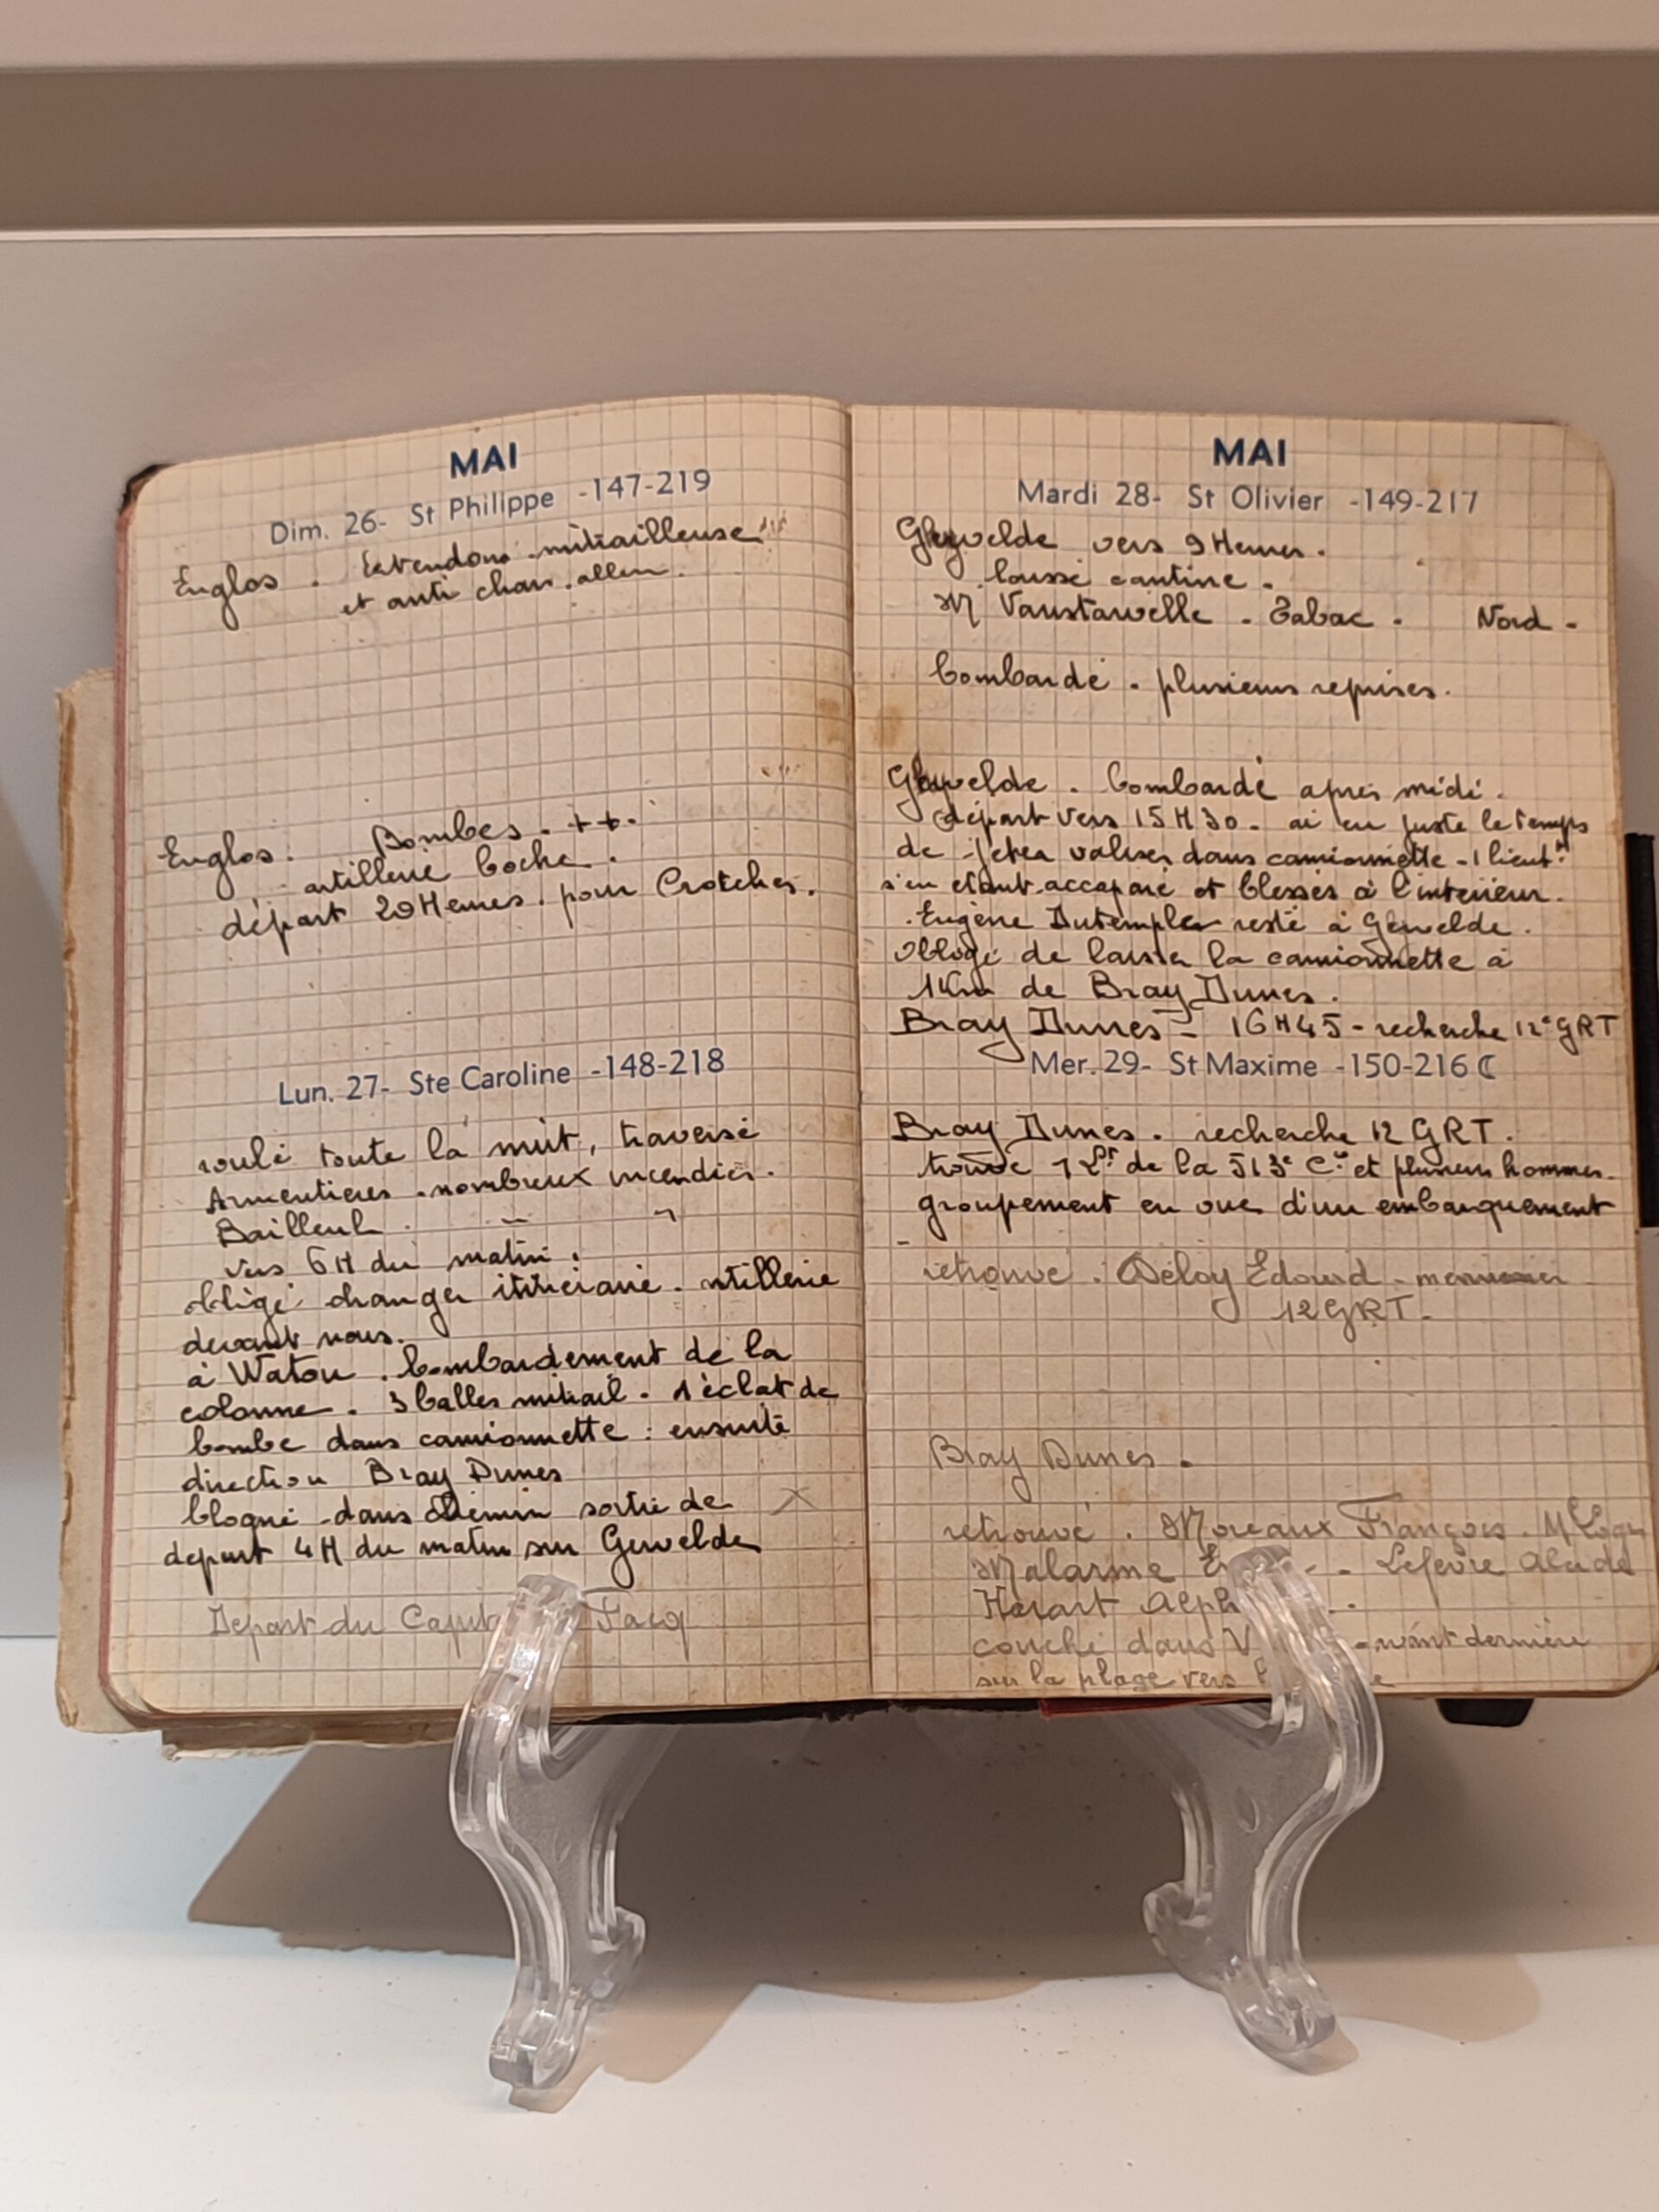 MAI
Dim. 26- St Philippe -147-219
Englos . Entendons mitrailleuse
et anti chars. allem.
Englos. Bombes . ++.
artillerie boche .
départ 20 Heures . pour Crotches.
Lun. 27- Ste Caroline -148-218
roulé toute la nuit, traversé
Armentieres . nombreux incendies.
Bailleul . " "
vers 6 H du matin :
obligé changer itinéraire . artillerie
devant nous.
à Watou . bombardement de la
colonne . 3 balles mitrail . 1 éclat de
bombe dans camionnette : ensuite
direction Bray Dunes
bloqué dans chemin sortie de
depart 4 H du matin sur Gewelde
Depart du Facq
MAI
Mardi 28- St Olivier -149-217
Ghyvelde vers 9 Heures .
laissé cantine .
M Vanstavelle . Tabac . Nord -
bombardé . plusieurs reprises .
Ghyvelde . bombardé apres midi .
départ vers 15 H 30 . ai eu juste le temps
de jeter valises dans camionnette - 1 lieut.nt
s'en étant accaparé et blessés à l'intérieur.
. Eugène Dutemple resté à Gewelde .
Obligé de laisser la camionnette à
1 Km de Bray Dunes .
Bray Dunes = 16 H 45 - recherche 12e GRT
Mer. 29- St Maxime -150-216 ☾
Bray Dunes . recherche 12 GRT .
trouvé 1 Lt de la 513e Cie et plusieurs hommes.
groupement en vue d'un embarquement
retrouvé . Deloy Edouard -
12 GRT -
Bray Dunes .
retrouvé . Moreaux François .
Malarme - Lefevre
Hazart Alph
couché dans nuit dernière
sur la plage vers